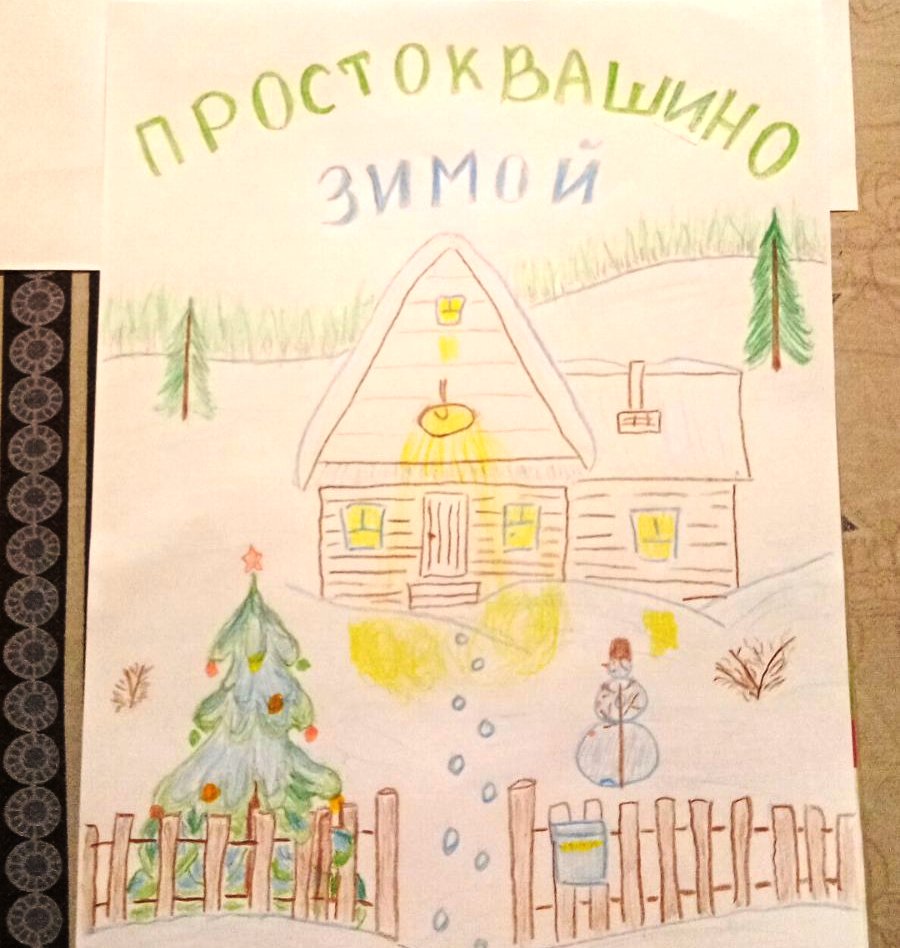 ПРОСТОКВАШИНО
ЗИМОЙ